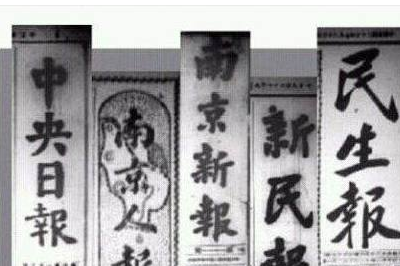 中央日報
南京人報
南京新報
新民報
民生報